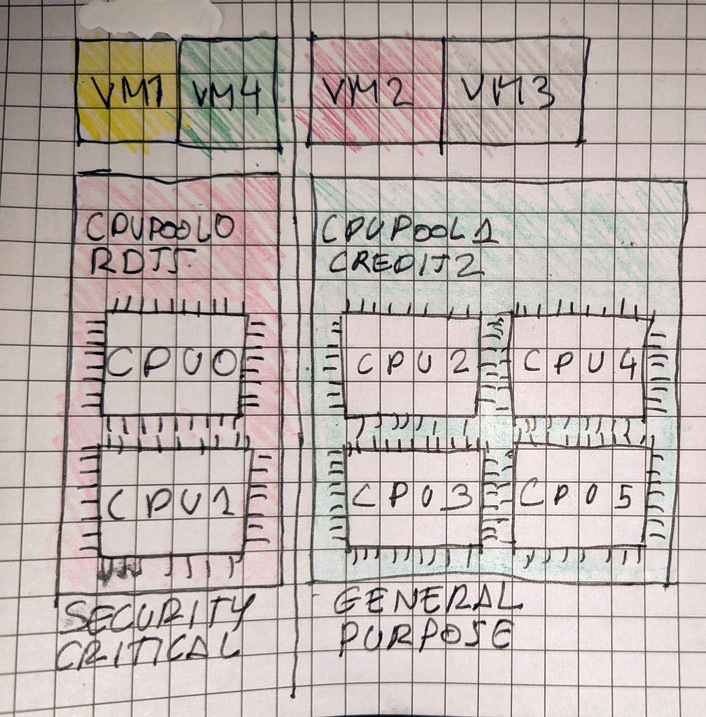 VM1 VM4 VM2 VM3
CPUPOOL0
RDTS
CPUPOOL1
CREDIT2
CPU0
CPU1
CPU2 CPU4
CPU3 CPU5
SECURITY
CRITICAL
GENERAL
PURPOSE